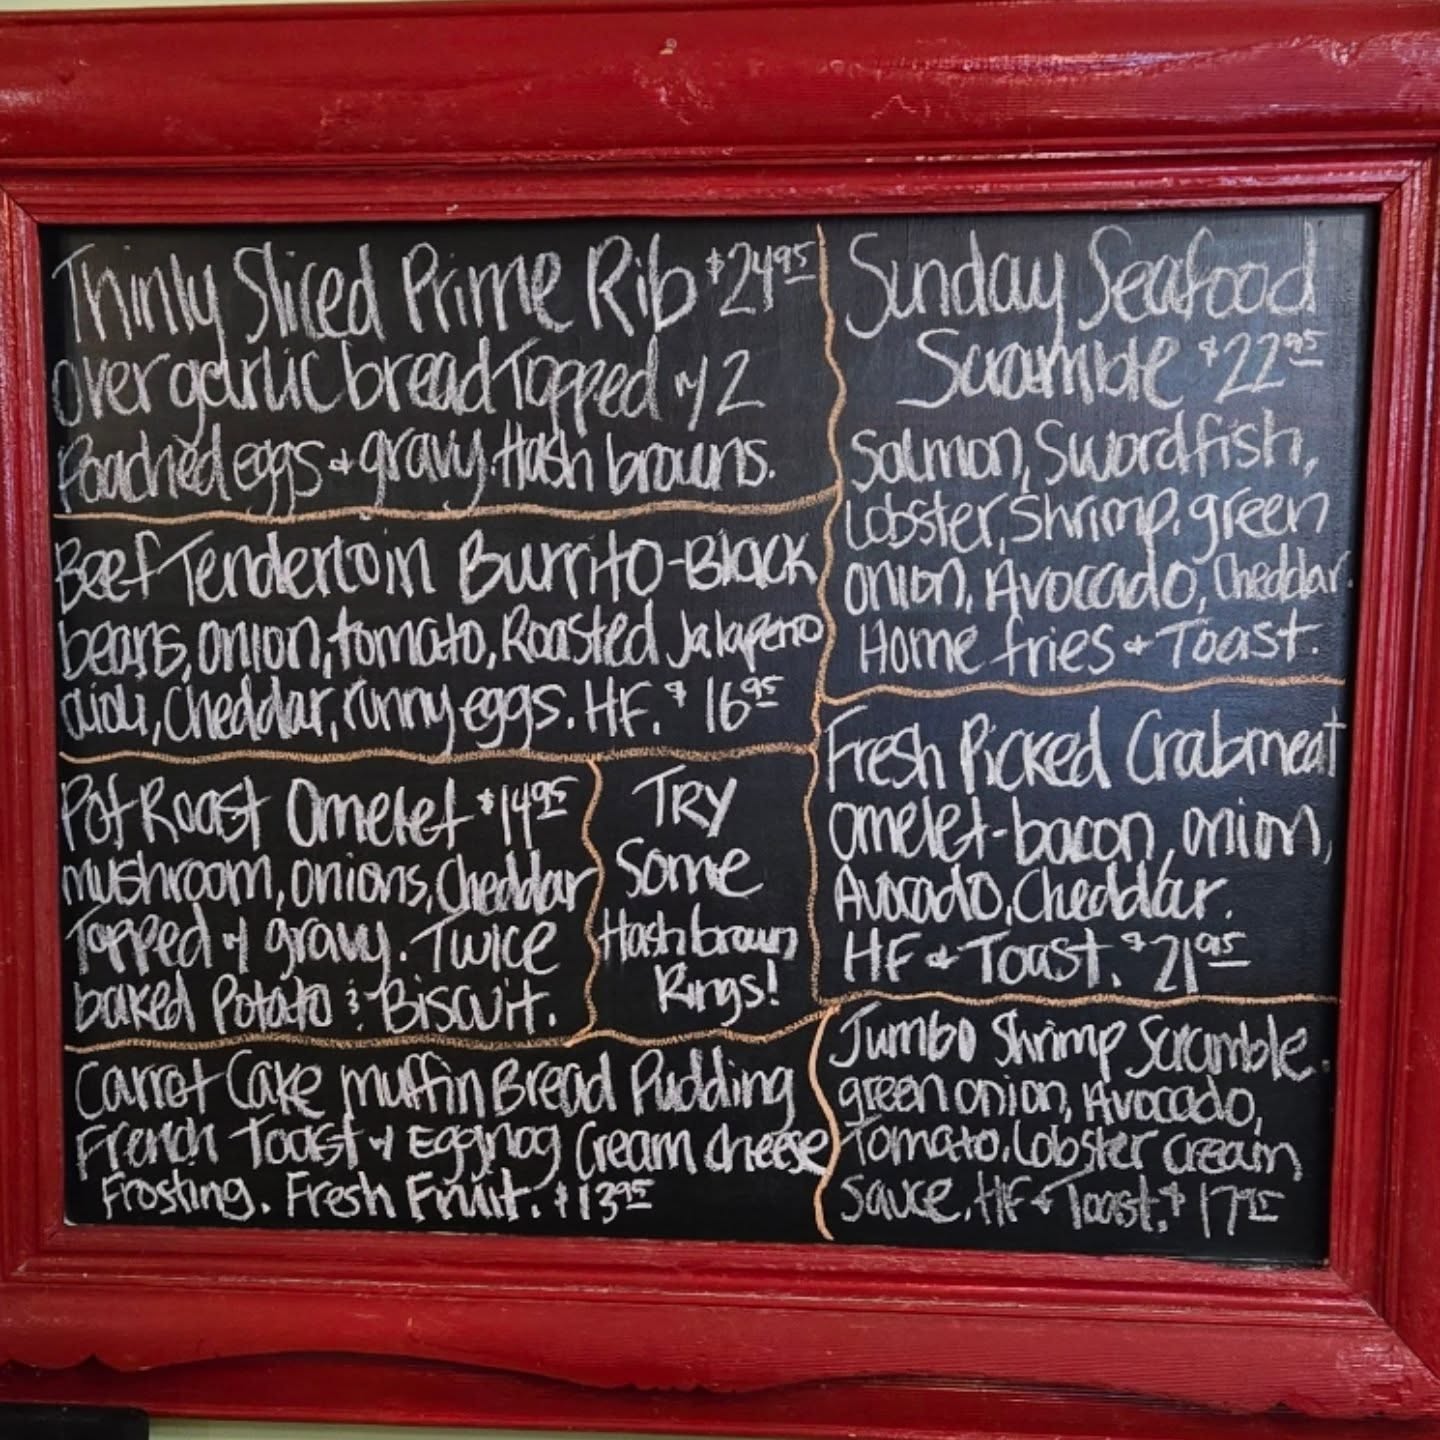 Thinly Sliced Prime Rib $24.95
over garlic bread Topped w/ 2
Poached eggs + gravy. Hash browns.
Beef Tenderloin Burrito - Black
beans, onion, tomato, Roasted Jalapeno
aioli, Cheddar, runny eggs. HF. $16.95
Pot Roast Omelet $14.95
mushroom, onions, Cheddar
Topped w/ gravy. Twice
baked Potato & Biscuit.
TRY
Some
Hashbrown
Rings!
Carrot Cake muffin Bread Pudding
French Toast w/ Eggnog Cream cheese
Frosting. Fresh Fruit. $13.95
Sunday Seafood
Scramble $22.95
Salmon, Swordfish,
Lobster, Shrimp, green
onion, Avocado, Cheddar.
Home fries + Toast.
Fresh Picked Crabmeat
omelet - bacon, onion,
Avocado, Cheddar.
HF + Toast. $21.95
Jumbo Shrimp Scramble.
green onion, Avocado,
Tomato, Lobster cream
sauce, HF + Toast. $17.95